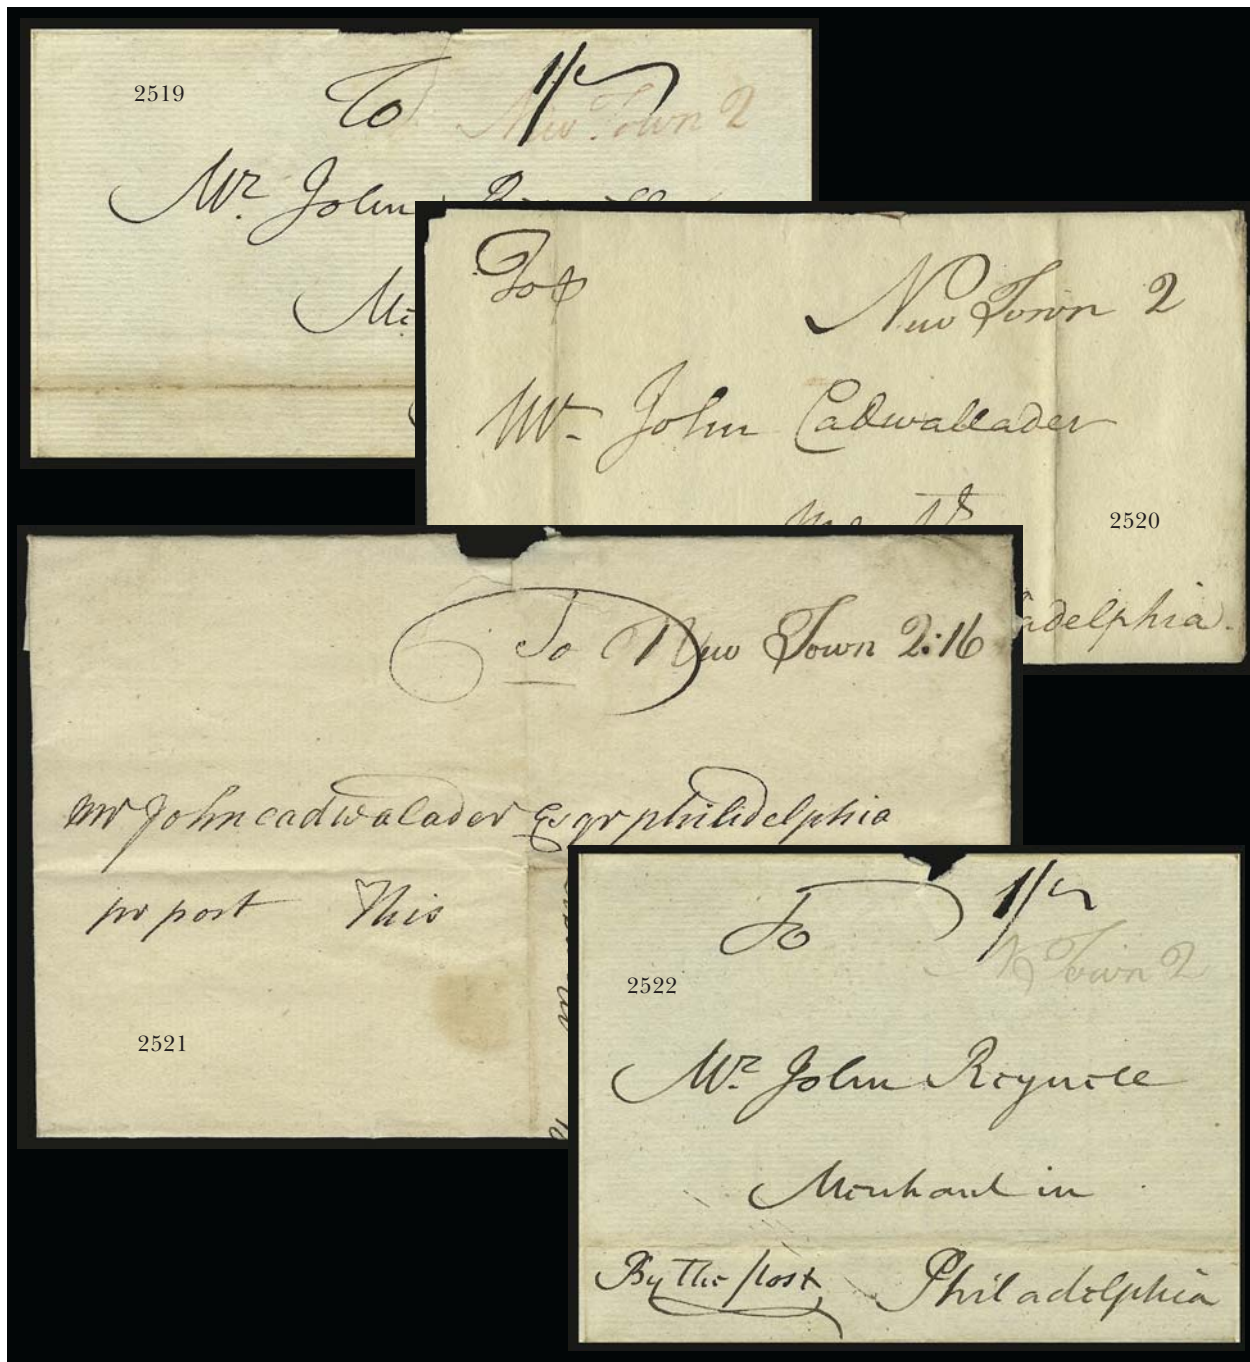 2519
To 1/2
New Town 2
Mr. John
To
New Town 2
Mr. John Cadwallader
2520
adelphia.
To New Town 2:16
mr John cadwalader Esqr philidelphia
pr post This
2521
To 1/2
N Town 2
2522
Mr. John Reynell
Merchant in
By the Post Philadelphia